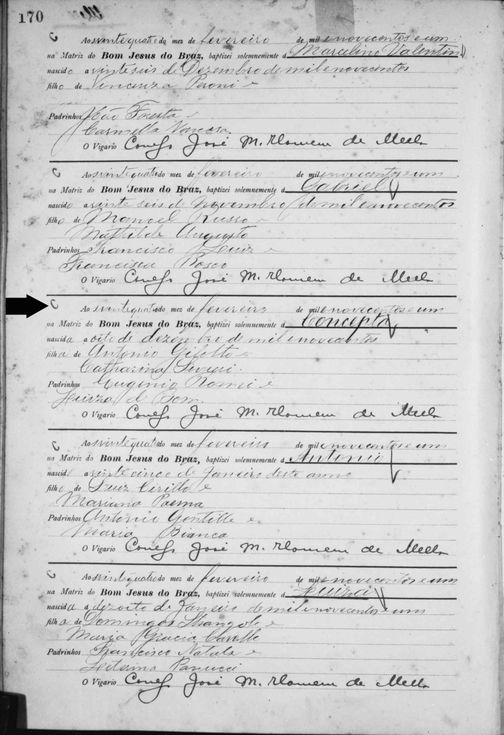 170
C
Aos vinte quatro do mez de fevereiro de mil e novecentos e um
na Matriz do Bom Jesus do Braz, baptizei solemnemente a Marcelino Valentim
nascido a vinte seis de Dezembro de mil e novecentos
filho de Vincenza Peroni e
Padrinhos João
Carmella
O Vigario Conego José M. Homem de Mello
C
Aos vinte quatro do mez de fevereiro de mil e novecentos e um
na Matriz do Bom Jesus do Braz, baptizei solemnemente a Gabriel
nascido a vinte seis de Novembro de mil e novecentos
filho de Manoel Russo e
Mathilde Augusta
Padrinhos Francisco Luiz e
Francisca Bosco
O Vigario Conego José M. Homem de Mello
C
Aos vinte quatro do mez de fevereiro de mil e novecentos e um
na Matriz do Bom Jesus do Braz, baptizei solemnemente a Concepta
nascida a oito de dezembro de mil e novecentos
filha de Antonio e
Catharina
Padrinhos Eugenio Romei e
Luiza
O Vigario Conego José M. Homem de Mello
C
Aos vinte quatro do mez de fevereiro de mil e novecentos e um
na Matriz do Bom Jesus do Braz, baptizei solemnemente a Antonio
nascido a vinte cinco de Janeiro deste anno
filho de Luiz Cirillo e
Marianna Palma
Padrinhos Antonio Gentille e
Rosaria Bianca
O Vigario Conego José M. Homem de Mello
C
Aos vinte quatro do mez de fevereiro de mil e novecentos e um
na Matriz do Bom Jesus do Braz, baptizei solemnemente a Luiza
nascida a dezoito de Janeiro de mil e novecentos e um
filha de Domingos e
Maria Gracia
Padrinhos Francisco Natale e
O Vigario Conego José M. Homem de Mello